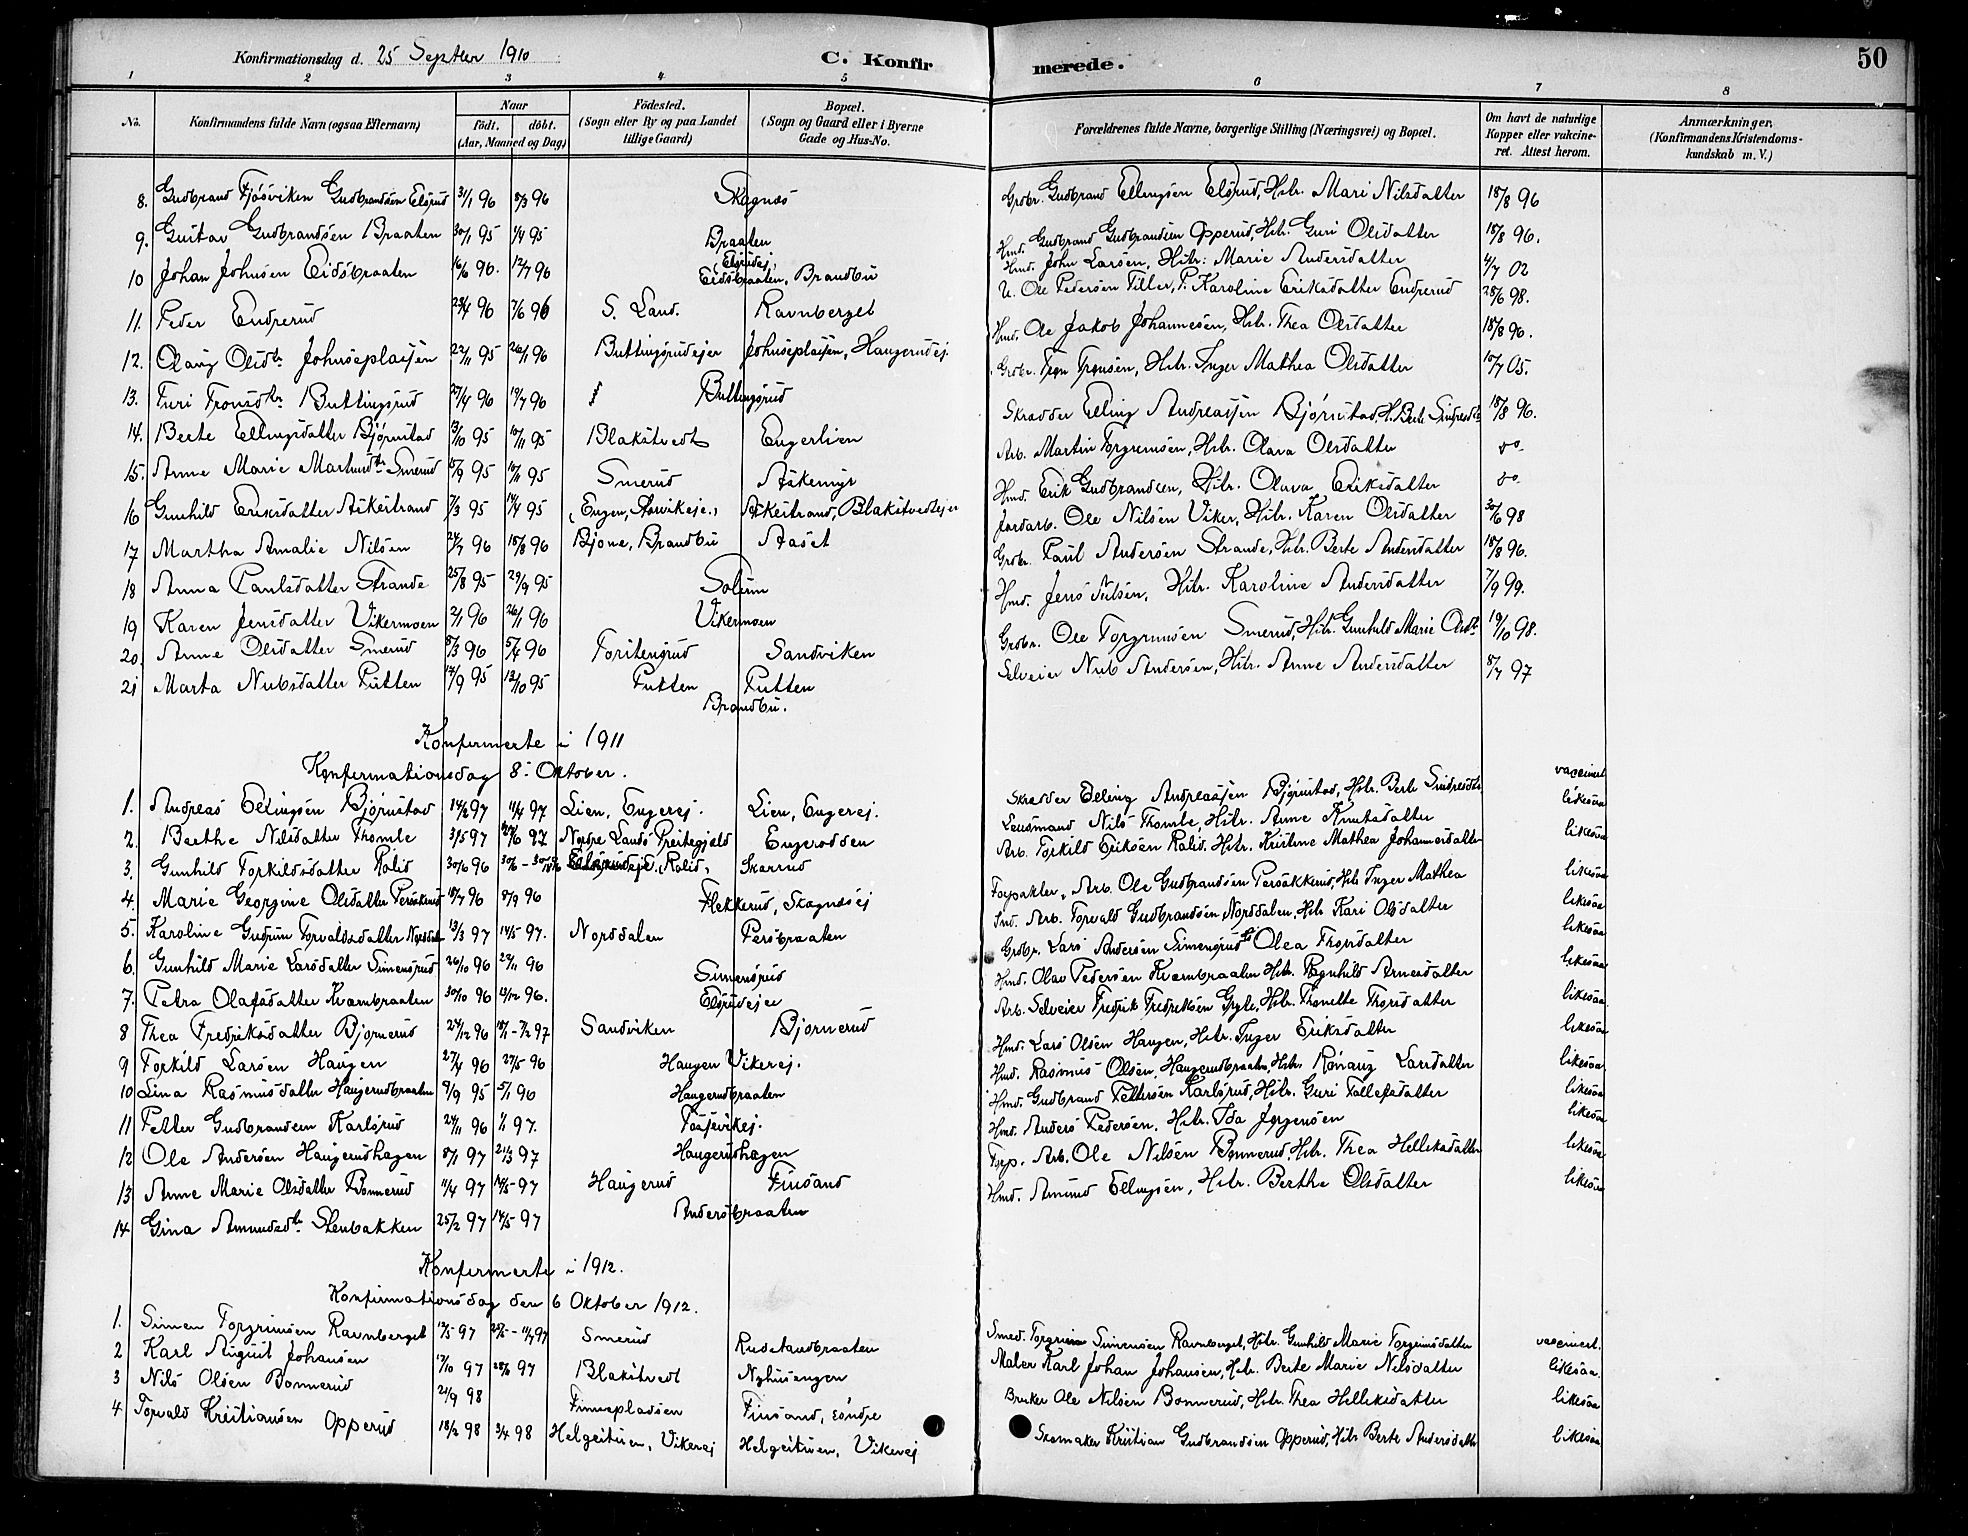 Konfirmationsdag d. 25 Septber 1910 C. Konfirmerede. 50
1 2 3 4 5 6 7 8
No. Konfirmandens fulde Navn (ogsaa Efternavn) Naar födt. döbt. (Aar, Maaned og Dag) Födested. (Sogn eller By og paa Landet tillige Gaard) Bopæl. (Sogn og Gaard eller i Byerne Gade og Hus-No. Forældrenes fulde Navne, borgerlige Stilling (Næringsvei) og Bopæl. Om havt de naturlige Kopper eller vakcineret. Attest herom. Anmærkninger, (Konfirmandens Kristendomskundskab m. V.)
8. Gudbrand Fjösviken Gudbrandsen Elsrud 31/1 96 8/3 96 Skagnæs Grdbr. Gudbrand Ellingsen Elsrud, Hstr. Mari Nilsdatter 18/8 96
9. Gustav Gudbrandsen Braaten 30/1 95 1/4 95 Braaten Hmd. Gudbrand Gudbrandsen Opperud, Hstr. Guri Olsdatter 18/8 96.
10 Johan Johnsen Eidsbraaten 16/6 96. 12/7 96 Elsrudej, Eidsbraaten, Brandbu Hmd. John Larsen, Hstr. Marie Andersdatter 4/7 02
11. Peder Endrerud 24/4 96 7/6 96 S. Land. Ravnberget U. Ole Pedersen Tiller, P. Karoline Eriksdatter Endrerud 28/6 98.
12. Olaug Olsdtr Johnseplassen 22/11 95 26/1 96 Buttingsrudejer Johnseplassen, Haugerudej. Hmd. Ole Jakob Johannesen, Hstr. Thea Olsdatter 18/8 96.
13. Turi Tronsdtr Buttingsrud 27/4 96 19/7 96 Buttingsrud Grdbr. Tron Tronsen, Hstr. Inger Mathea Olsdatter 10/7 05.
14. Berte Ellingsdatter Bjørnstad 13/10 95 10/11 95 Blakstvedt Engerlien Skrædder Elling Andreassen Bjørnstad, H. Berte Sindresdtr 18/8 96.
15. Anne Marie Martinsdtr Smerud 15/9 95 10/11 95 Smerud Askemyr Arb. Martin Torgrimsen, Hstr. Olava Olsdatter do.
16 Gunhild Eriksdatter Askeitrand 7/3 95 14/4 95 Engen, Askeitrand, Blakstvedtejer Hmd. Erik Gudbrandsen, Hstr. Olava Eriksdatter do.
17 Martha Amalie Nilsen 24/7 96 18/8 96 Bjone, Brandbu Aaset Jordarb. Ole Nilsen Viker, Hstr. Karen Olsdatter 30/6 98
18 Anna Paulsdatter Strande 25/8 95 29/9 95 Solum Grdbr. Paul Andersen Strande, Hstr. Berte Andersdatter 18/8 96.
19 Karen Jensdatter Vikermoen 2/1 96 26/1 96 Vikermoen Hmd. Jens Nilsen, Hstr. Karoline Andersdatter 7/9 99.
20. Anne Olsdatter Smerud 8/3 96 5/4 96 Sandviken Grdbr. Ole Torgrimsen Smerud, Hstr. Gunhild Marie Olsdtr 19/10 98.
21 Marta Nubsdatter Putten 14/9 95 13/10 95 Putten Putten Brandbu. Selveier Nub Andersen, Hstr. Anne Andersdatter 8/7 97
Konfermerte i 1911
Konfermationsdag 8. Oktober.
1. Andreas Ellingsen Bjørnstad 14/2 97 11/4 97 Lien, Engerej. Lien, Engerej. Skrædder Elling Andreassen Bjørnstad, Hstr. Berte Sindresdtr vaccinert
2. Berthe Nilsdatter Thomle 31/5 97 27 Nordre Lands Præstegjeld Engerodden Lensmand Nils Thomle, Hstr. Anne Knutsdatter likesaa
3. Gunhild Torkildsdatter Ralid 30/6 96 Ralid, Skarrud Arb. Torkild Eriksen Ralid, Hstr. Kristine Mathea Johannesdatter likesaa
4. Marie Georgine Olsdatter 18/7 96 8/9 96 Flekkerud, Skagnæsej Forpakter, Arb. Ole Gudbrandsen Persækkerud, Hstr Inger Mathea likesaa
5. Karoline Gudrun Torvaldsdatter Norddalen 13/3 97 14/5 97. Norddalen Persbraaten Ind. Arb. Torvald Gudbrandsen Norddalen, Hstr Kari Olsdatter likesaa
6. Gunhild Marie Larsdatter Simensrud 26/10 96 29/11 96 Simensrud Grdbr. Lars Andersen Simensrud Olea Thorsdatter likesaa
7. Petra Olafsdatter Kvernbraaten 30/10 96 13/12 96. Elsrudejer Hmd. Olav Pedersen Kvernbraaten Hstr. Ragnhild Arnesdatter likesaa
8 Thea Fredriksdatter Bjørnerud 24/12 96 18/1-7/2 97 Sandviken Bjørnerud Arb. Selveier Fredrik Fredriksen Hstr. Thonette Thorsdatter likesaa
9 Torkild Larsen Haugen 27/4 96 27/5 96 Haugen Vikerej. Hmd. Lars Olsen Haugen, Hstr. Inger Eriksdatter likesaa
10 Lina Rasmusdatter Haugerudbraaten 9/9 95 5/1 96 Haugerudbraaten Hmd. Rasmus Olsen, Haugerudbraaten, Hstr. Rönaug Larsdatter likesaa
11 Petter Gudbrandsen Karlsrud 24/11 96 1/1 97. Hmd. Gudbrand Pettersen Karlsrud, Hstr. Guri Tollefsdatter likesaa
12 Ole Andersen Haugerudhagen 8/1 97 21/3 97 Haugerudhagen Hmd. Anders Pedersen, Hstr. Ida Jørgensen likesaa
13 Anne Marie Olsdatter Bonnerud 11/4 97 14/5 97 Haugerud Finsand Forp. Arb. Ole Nilsen Bonnerud, Hstr. Thea Helliksdatter likesaa
14. Gina Amundsdtr Stenbakken 25/2 97 14/5 97 Andersbraaten Hmd. Amund Ellingsen, Hstr. Berthe Olsdatter likesaa
Konfermerte i 1912.
Konfirmationsdag den 6 Oktober 1912.
1. Simen Torgrimsen Ravnberget 12/5 97 Smerud Rudstandbraaten Smed. Torgrim Simensen Ravnberget, Hstr. Gunhild Marie Torgrimsdatter vaccinert.
2 Karl August Johansen 17/10 97 28/11 97 Blakstvedt Nyhusengen Maler Karl Johan Johansen, Hstr. Berte Marie Nilsdatter likesaa.
3 Nils Olsen Bonnerud 21/9 98 Finnepladsen Finsand, søndre Bruker Ole Nilsen Bonnerud, Hstr. Thea Helliksdatter likesaa
4 Torvald Kristiansen Opperud 18/2 98 3/4 98 Helgeituen, Vikerej Helgeituen, Vikerej Skomaker Kristian Gudbrandsen Opperud, Hstr Berte Andersdatter likesaa